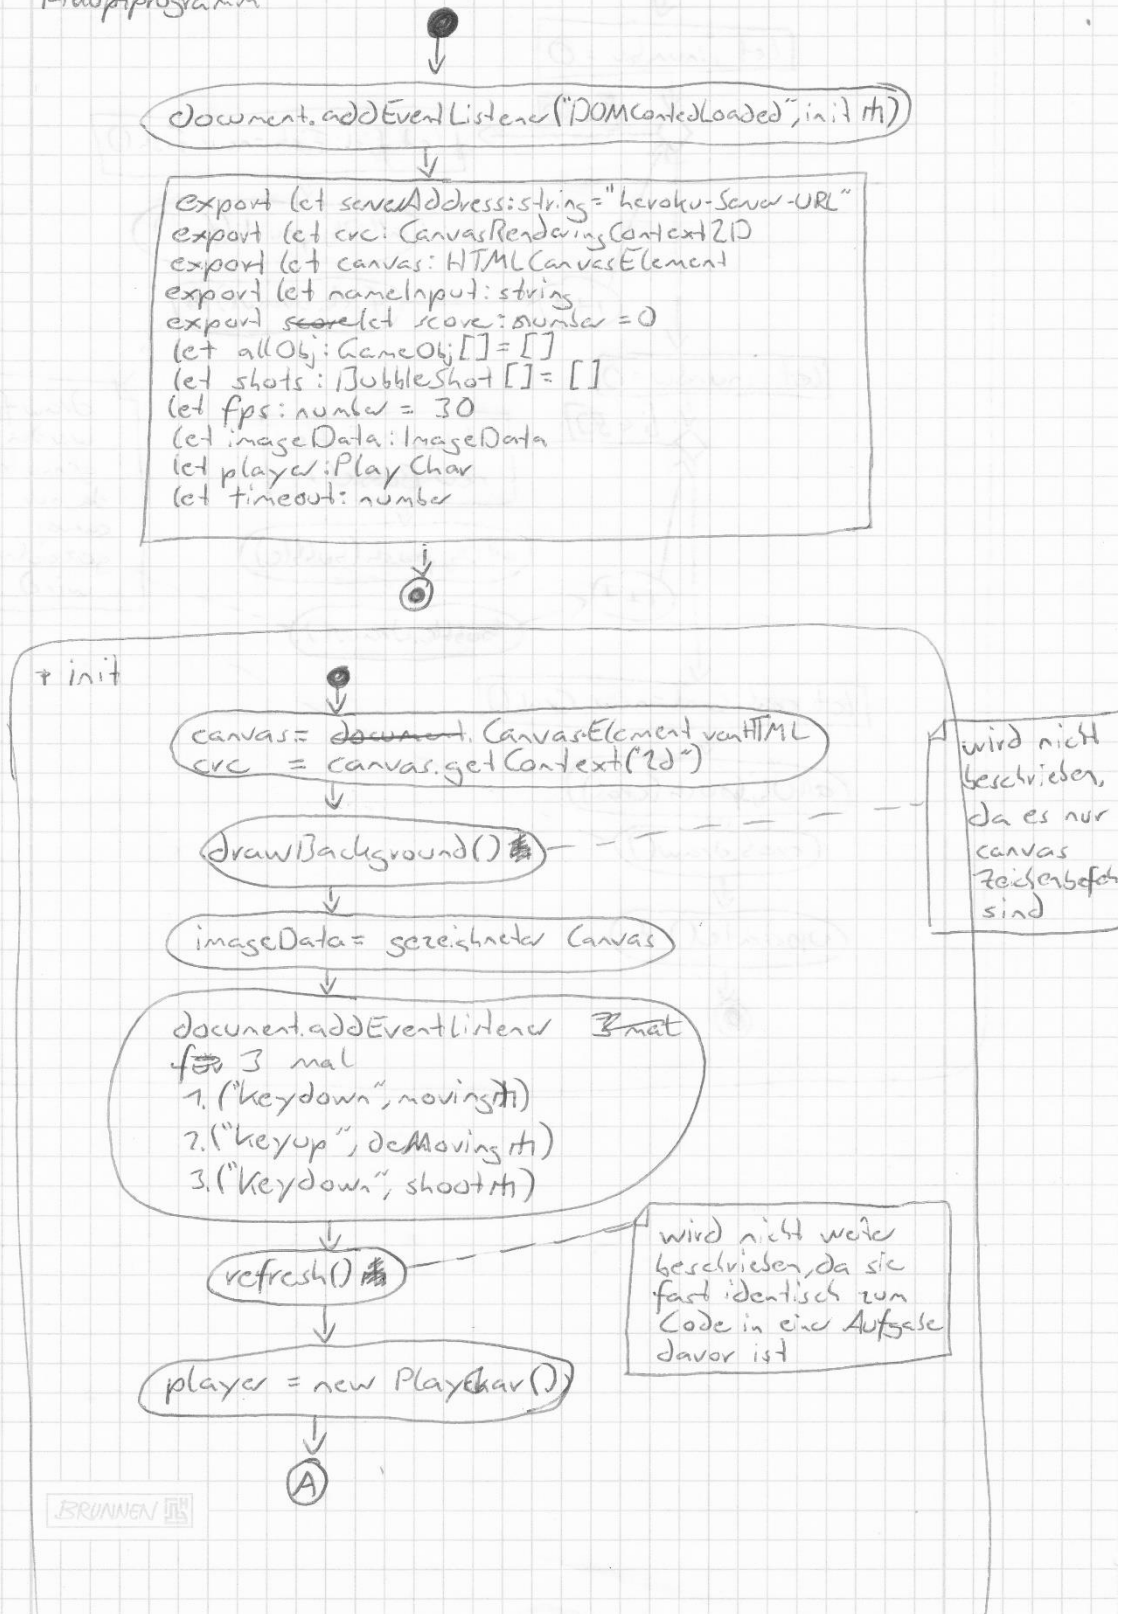 Hauptprogramm
document.addEventListener("DOMContedLoaded", init ⋔)
export let serverAddress:string="heroku-Server-URL"
export let crc: CanvasRenderingContext2D
export let canvas: HTMLCanvasElement
export let nameInput: string
export score let score: number = 0
let allObj: GameObj[] = []
let shots: BubbleShot[] = []
let fps: number = 30
let imageData: ImageData
let player: PlayChar
let timeout: number
init
canvas = document. CanvasElement von HTML
crc = canvas.getContext("2d")
wird nicht
beschrieben,
da es nur
canvas
Zeichenbefeh
sind
drawBackground()
imageData = gezeichneter Canvas
document.addEventListener 3 mal
for 3 mal
1. ("keydown", moving ⋔)
2. ("keyup", deMoving ⋔)
3. ("keydown", shoot ⋔)
refresh()
wird nicht weiter
beschrieben, da sie
fast identisch zum
Code in einer Aufgabe
davor ist
player = new PlayChar()
A
BRUNNEN